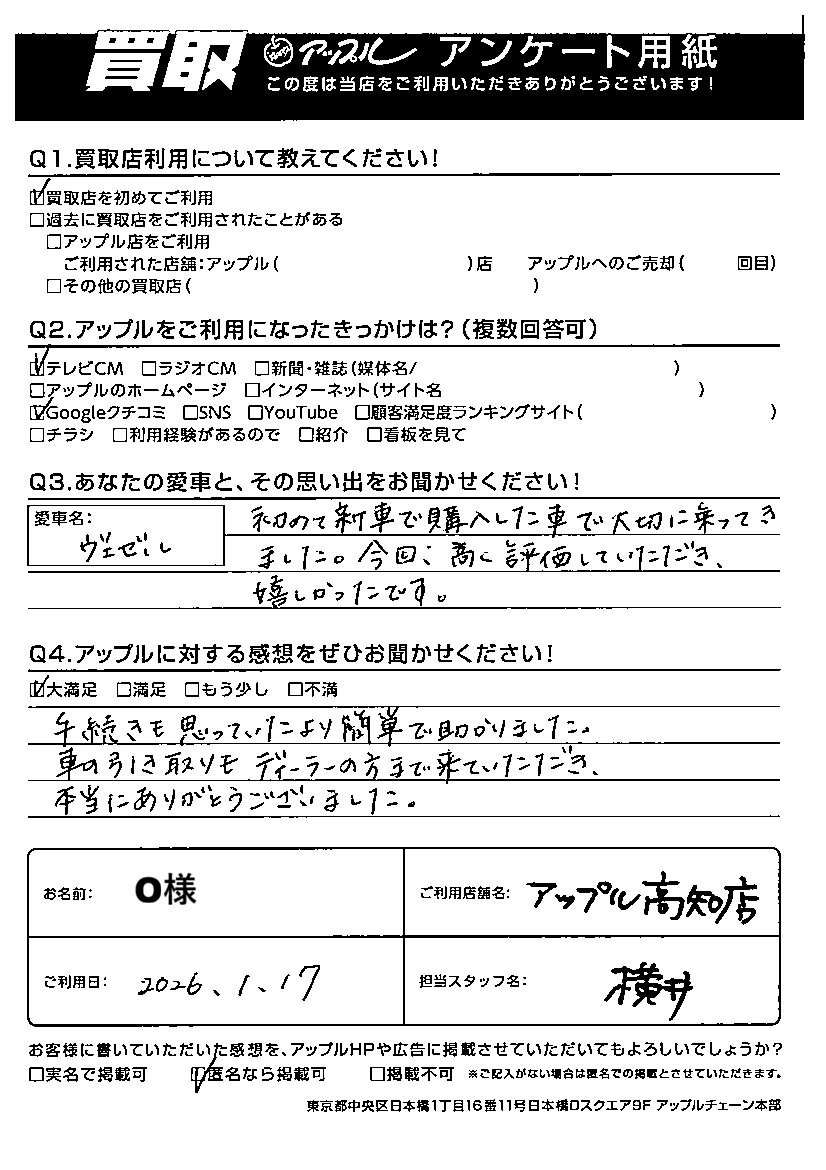 買取 アップル アンケート用紙
この度は当店をご利用いただきありがとうございます！
Q1.買取店利用について教えてください！
☑買取店を初めてご利用
□過去に買取店をご利用されたことがある
□アップル店をご利用
ご利用された店舗：アップル（ ）店 アップルへのご売却（ 回目）
□その他の買取店（ ）
Q2.アップルをご利用になったきっかけは？（複数回答可）
☑テレビCM □ラジオCM □新聞・雑誌（媒体名/ ）
□アップルのホームページ □インターネット（サイト名 ）
☑Googleクチコミ □SNS □YouTube □顧客満足度ランキングサイト（ ）
□チラシ □利用経験があるので □紹介 □看板を見て
Q3.あなたの愛車と、その思い出をお聞かせください！
愛車名：
ヴェゼル
初めて新車で購入した車で大切に乗ってき
ました。今回、高く評価していただき、
嬉しかったです。
Q4.アップルに対する感想をぜひお聞かせください！
☑大満足 □満足 □もう少し □不満
手続きも思っていたより簡単で助かりました。
車の引き取りもディーラーの方まで来ていただき、
本当にありがとうございました。
お名前： O様 ご利用店舗名： アップル高知店
ご利用日： 2026、1、17 担当スタッフ名： 横井
お客様に書いていただいた感想を、アップルHPや広告に掲載させていただいてもよろしいでしょうか？
□実名で掲載可 ☑匿名なら掲載可 □掲載不可 ※ご記入がない場合は匿名での掲載とさせていただきます。
東京都中央区日本橋1丁目16番11号日本橋ロスクエア9F アップルチェーン本部